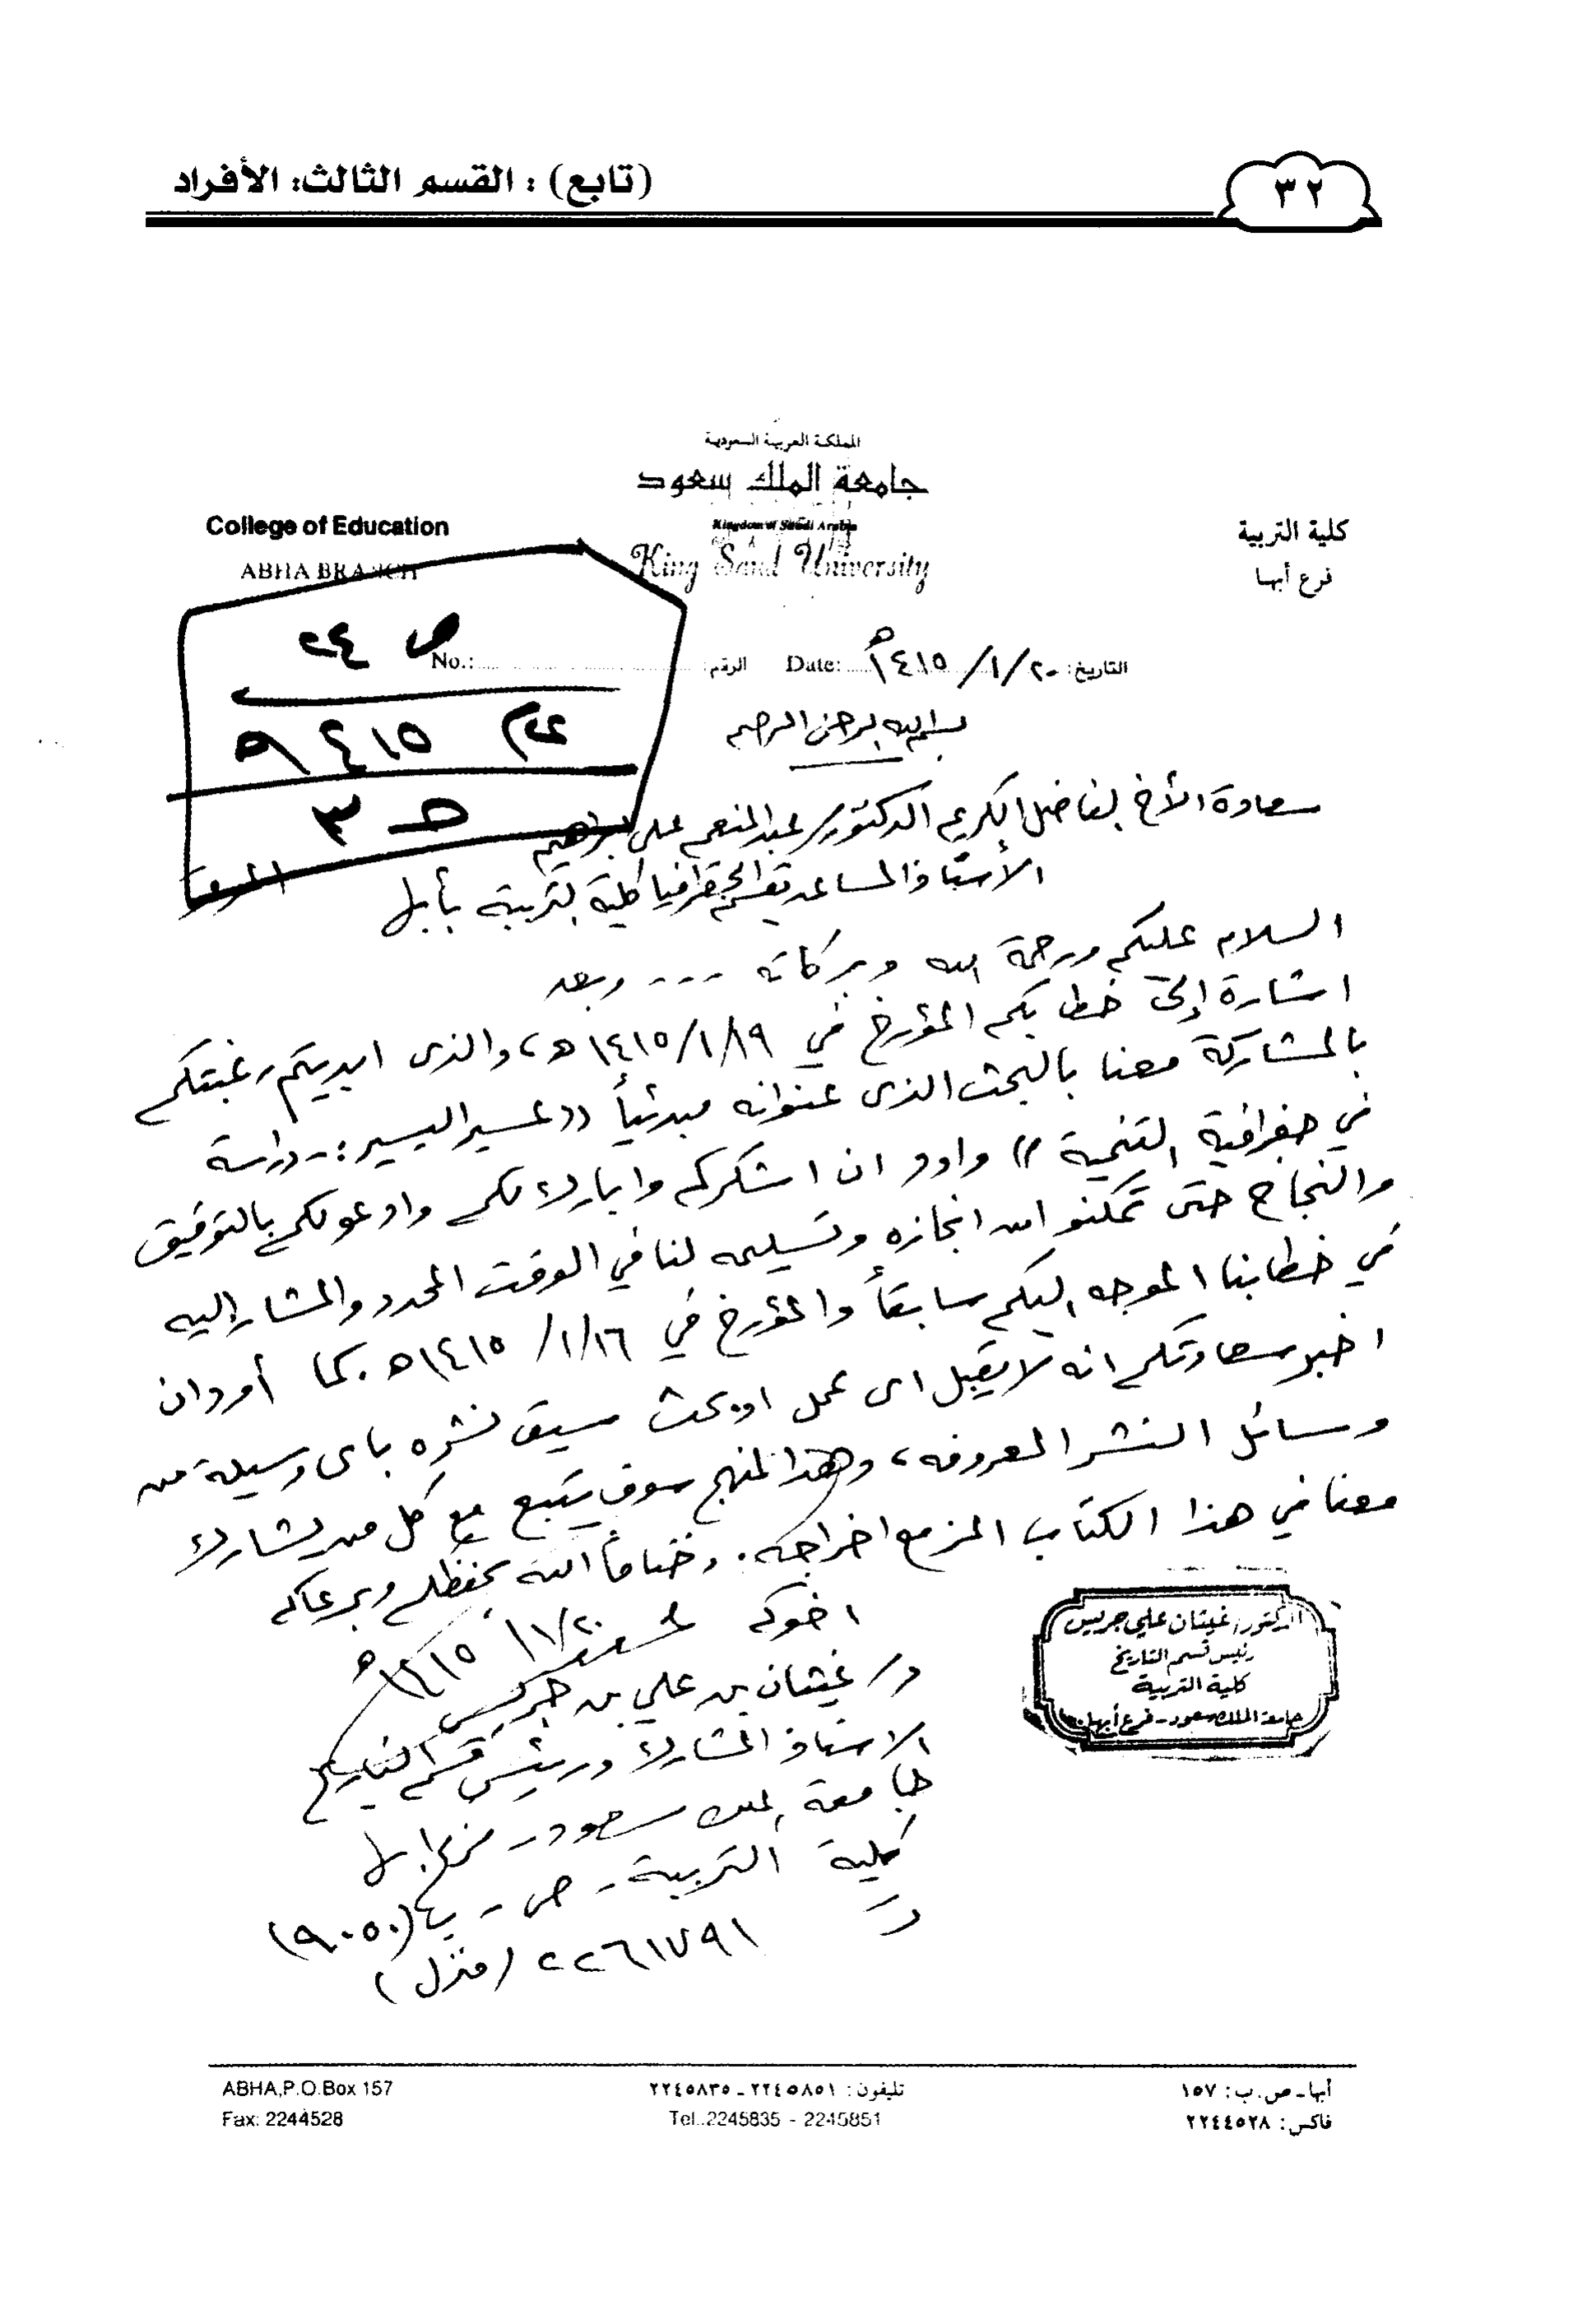 ٣٢
(تابع) : القسم الثالث: الأفراد
المملكة العربية السعودية
جامعة الملك سعود
Kingdom of Saudi Arabia
King Saud University
كلية التربية
فرع أبها
College of Education
ABHA BRANCH
التاريخ: ٢٠/١/١٤١٥هـ Date: الرقم: No.:
ص ٢٤
١٤١٥هـ
ح ٣
بسم الله الرحمن الرحيم
سعادة الأخ الفاضل الكريم الدكتور/ عبدالمنعم علي ابراهيم
الأستاذ المساعد بقسم الجغرافيا كلية التربية بأبها الموقر
السلام عليكم ورحمة الله وبركاته --- وبعد
اشارة إلى خطابكم المؤرخ في ١٩/١/١٤١٥هـ، والذى ابديتم رغبتكم
بالمشاركة معنا بالبحث الذى عنوانه مبدئياً ((عسير اليسير :- دراسة
في جغرافية التنمية)) واود ان اشكركم وابارك لكم وادعو لكم بالتوفيق
والنجاح حتى تمكنوا من انجازه وتسليمه لنا في الوقت المحدد والمشار إليه
في خطابنا الموجه إليكم سابقاً والمؤرخ في ١٦/١/١٤١٥هـ. كما أود ان
اخبر سعادتكم انه لا يقبل اى عمل او بحث سبق نشره باى وسيلة من
وسائل النشر المعروفه، وهذا المنهج سوف يتبع مع كل من يشارك
معنا في هذا الكتاب المزمع اخراجه. وختاماً الله يحفظكم ويرعاكم
اخوكم
٢٠/١/١٤١٥هـ
د/ غيثان بن علي بن جريس
الاستاذ المشارك ورئيس قسم التاريخ
جامعة الملك سعود - فرع ابها
كلية التربية - ص - ب (٩٠٥٠)
٢٢٦١٧٩١ (منزل)
الدكتور/ غيثان علي جريس
رئيس قسم التاريخ
كلية التربية
جامعة الملك سعود - فرع أبها
أبها - ص.ب: ١٥٧
فاكس: ٢٢٤٤٥٢٨
تليفون: ٢٢٤٥٨٥١ - ٢٢٤٥٨٣٥
Tel..2245835 - 2245851
ABHA,P.O.Box 157
Fax: 2244528